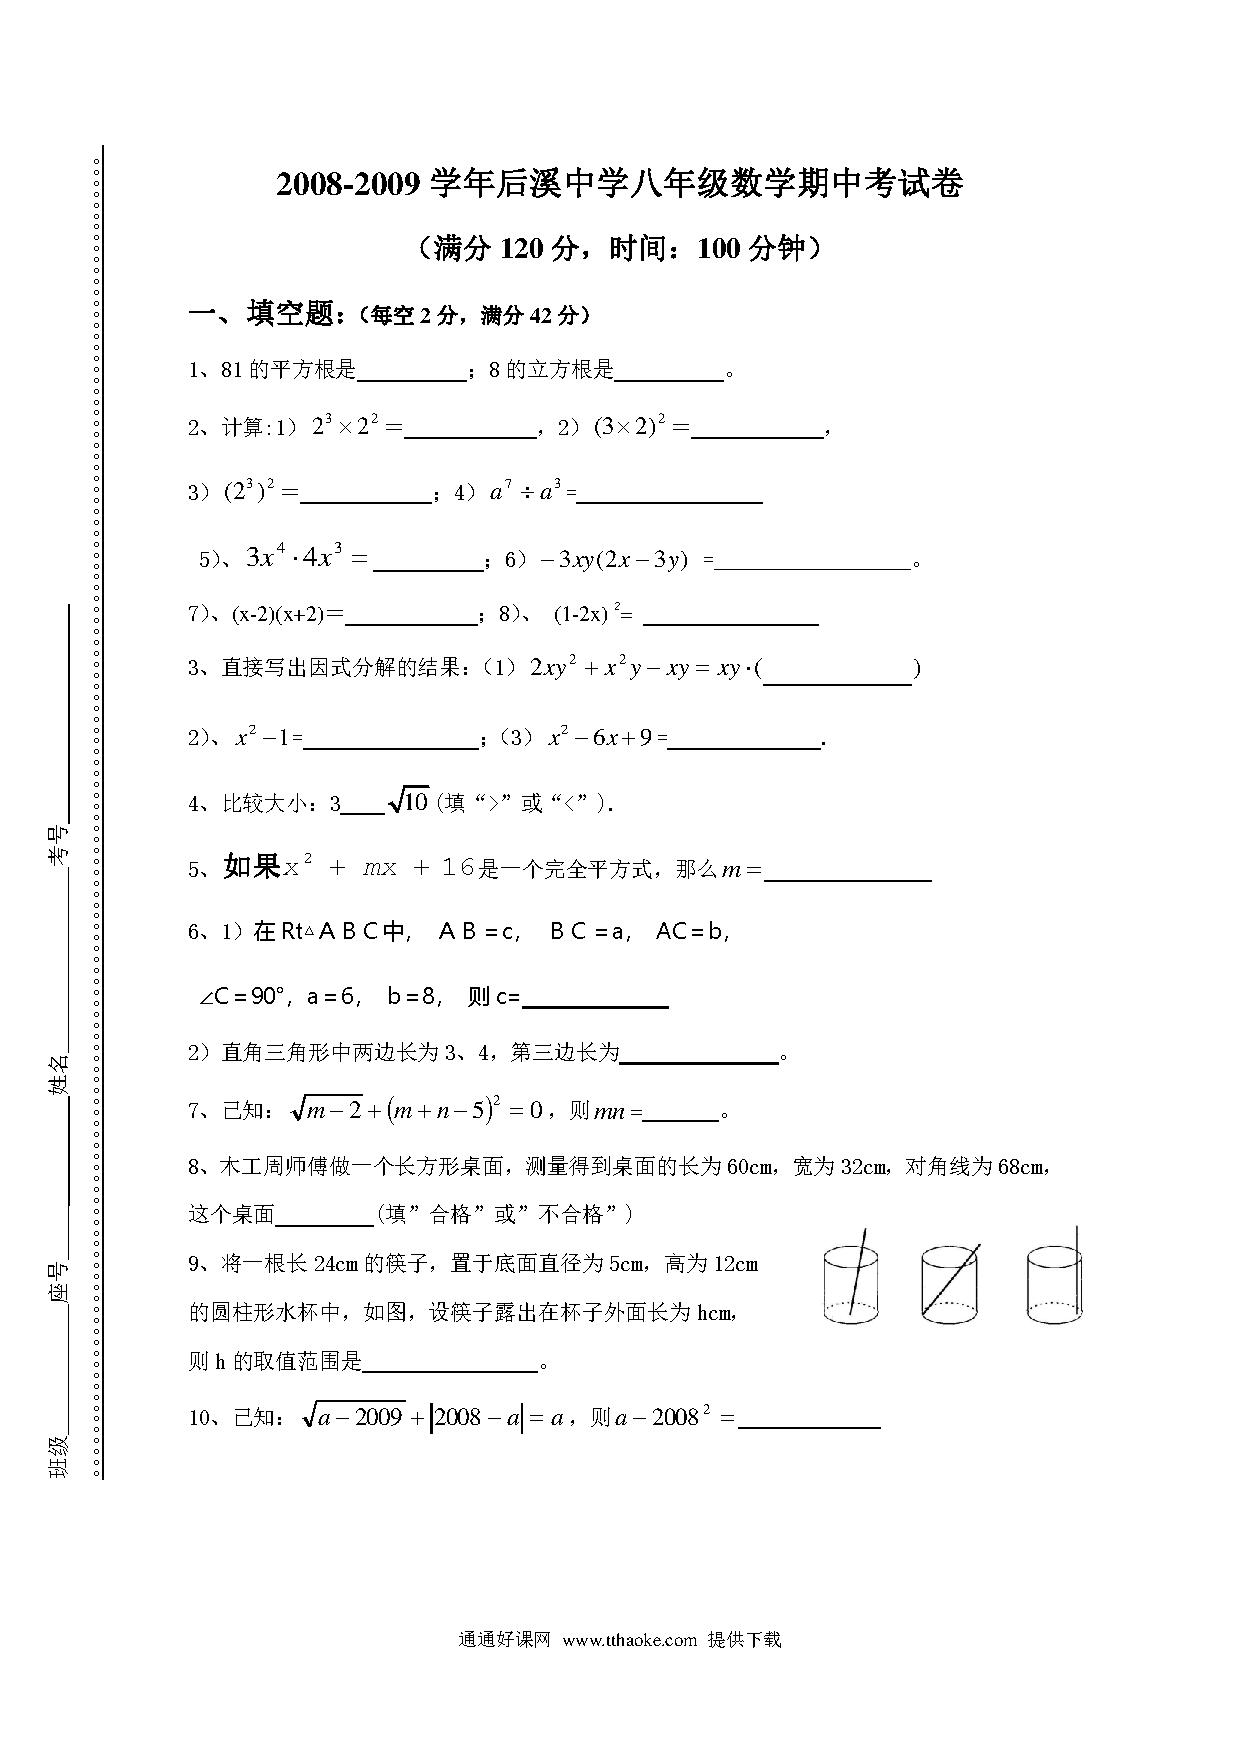 2008-2009 学年后溪中学八年级数学期中考试卷
（满分 120 分，时间：100 分钟）
一、填空题：（每空 2 分，满分 42 分）
1、81 的平方根是__________；8 的立方根是__________。
2、计算:1） 2³×2²＝____________，2）(3×2)²＝____________，
3）(2³)²＝____________；4）a⁷÷a³=_________________
5）、3x⁴·4x³＝__________；6）－3xy(2x－3y) =__________________。
7）、(x-2)(x+2)＝____________；8）、 (1-2x) ²= ________________
3、直接写出因式分解的结果：（1）2xy²＋x²y－xy＝xy·(_____________)
2）、x²－1=________________；（3）x²－6x＋9=______________．
4、比较大小：3____ √10 (填“>”或“<”).
5、如果x² + mx + 16是一个完全平方式，那么m＝_______________
6、1）在Rt△ＡＢＣ中， ＡＢ＝c， ＢＣ＝a， AC＝b，
∠C＝90°，a＝6， b＝8， 则 c=_____________
2）直角三角形中两边长为 3、4，第三边长为______________。
7、已知：√(m－2)＋(m＋n－5)²＝0，则mn=_______。
8、木工周师傅做一个长方形桌面，测量得到桌面的长为60cm，宽为32cm，对角线为68cm，
这个桌面_________(填”合格”或”不合格”)
9、将一根长 24cm 的筷子，置于底面直径为 5cm，高为 12cm
的圆柱形水杯中，如图，设筷子露出在杯子外面长为 hcm，
则 h 的取值范围是________________。
10、已知：√(a－2009)＋|2008－a|＝a，则a－2008²＝_____________
班级__________座号__________姓名__________考号__________
通通好课网 www.tthaoke.com 提供下载